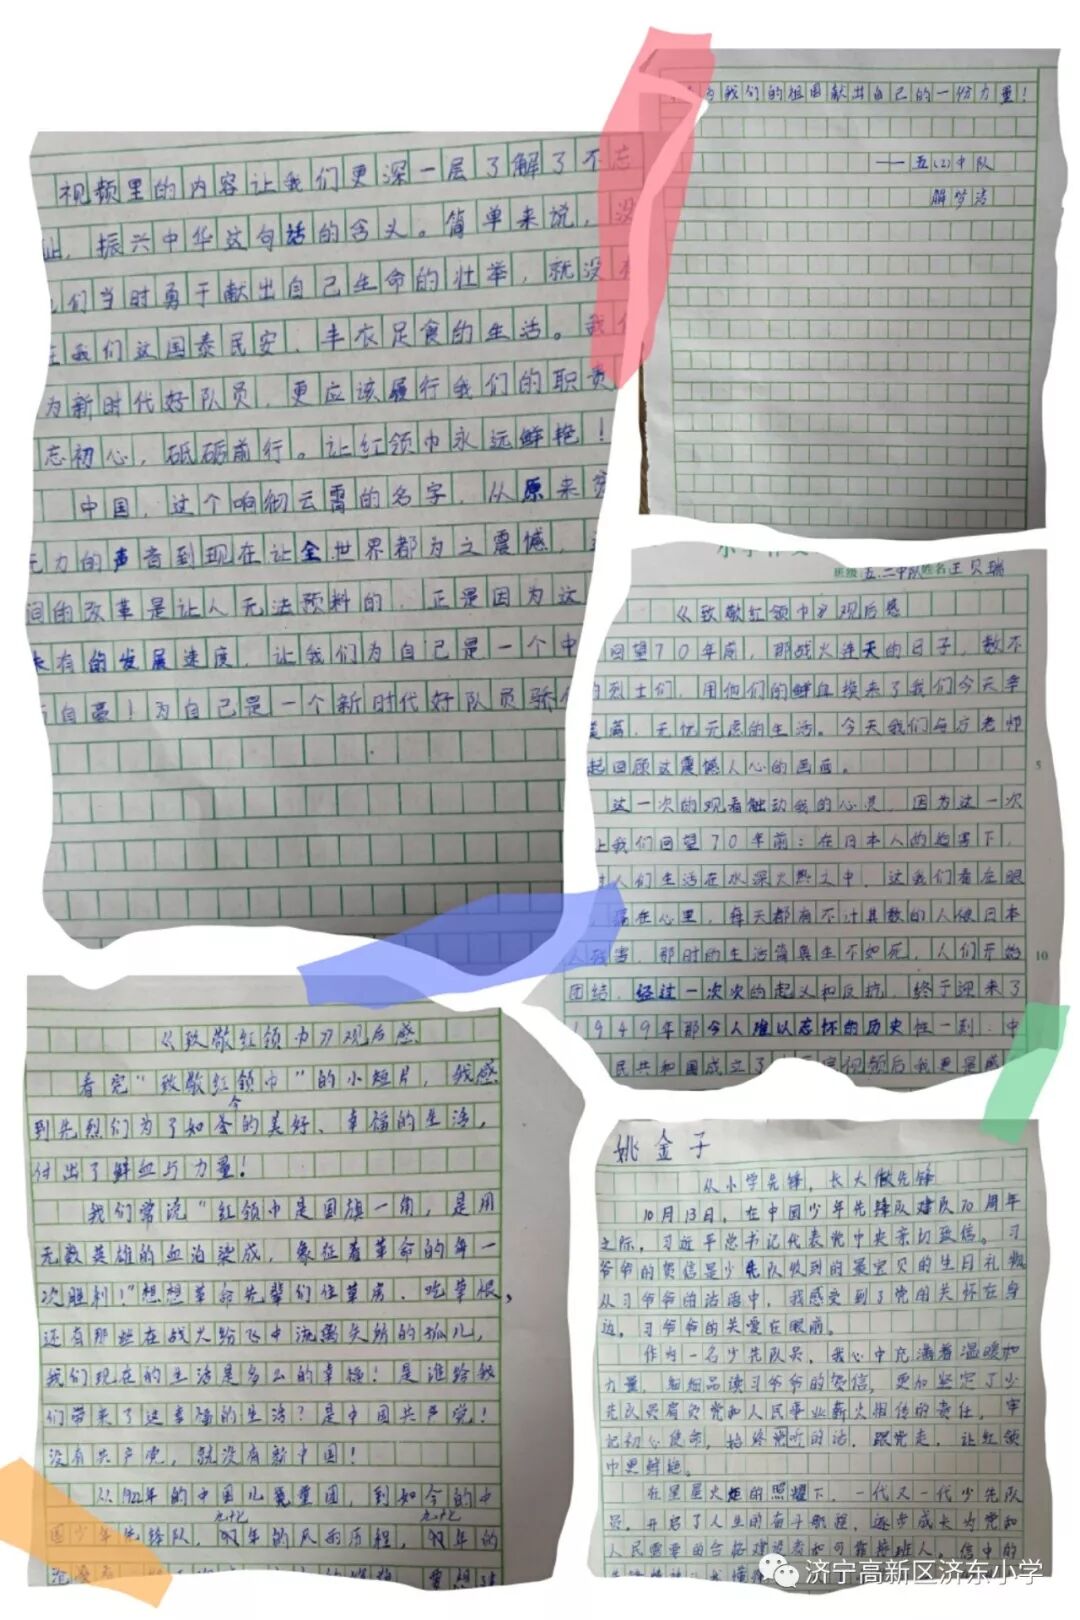 视频里的内容让我们更深一层了解了不忘
耻，振兴中华这句话的含义。简单来说，没
们当时勇于献出自己生命的壮举，就没有
在我们这国泰民安、丰衣足食的生活。我们
为新时代好队员，更应该履行我们的职责
忘初心，砥砺前行。让红领巾永远鲜艳！
中国，这个响彻云霄的名字，从原来
无力的声音到现在让全世界都为之震憾，
间的改革是让人无法预料的，正是因为这
未有的发展速度，让我们为自己是一个中
自豪！为自己是一个新时代好队员骄
为我们的祖国献出自己的一份力量！
——五(2)中队
解梦洁
班级 五.二中队 姓名 王贝瑞
《致敬红领巾》观后感
回望70年前，那战火连天的日子，数不
的烈士们，用他们的鲜血换来了我们今天幸
美满，无忧无虑的生活。今天我们与方老师
起回顾这震憾人心的画面。
5
这一次的观看触动我的心灵，因为这一次
让我们回望70年前：在日本人的迫害下，
人们生活在水深火热之中，这我们看在眼
在心里，每天都有不计其数的人被日本
人残害，那时的生活简直生不如死，人们开始
10
团结，经过一次次的起义和反抗，终于迎来了
1949年那令人难以忘怀的历史性一刻：中
民共和国成立了 完视频后我更是感
《致敬红领巾》观后感
看完“致敬红领巾”的小短片，我感
到先烈们为了如今的美好、幸福的生活，
付出了鲜血与力量！
我们常说“红领巾是国旗一角，是用
无数英雄的血泊染成，象征着革命的每一
次胜利！”想想革命先辈们住草房、吃草根，
还有那些在战火纷飞中流离失所的孤儿，
我们现在的生活是多么的幸福！是谁给我
们带来了这幸福的生活？是中国共产党！
没有共产党，就没有新中国！
从1922年的中国儿童团，到如今的中
国少年先锋队，九十七年的风雨历程，九十七年的
姚金子
从小学先锋，长大做先锋
10月13日，在中国少年先锋队建队70周年
之际，习近平总书记代表党中央亲切致信。习
爷爷的贺信是少先队收到的最宝贝的生日礼物
从习爷爷的话语中，我感受到了党的关怀在身
边，习爷爷的关爱在眼前。
作为一名少先队员，我心中充满着温暖和
力量，细细品读习爷爷的贺信，更加坚定了少
先队员肩负党和人民事业薪火相传的责任，牢
记初心使命，始终党听的话，跟党走，让红领
巾更鲜艳。
在星星火炬的照耀下，一代又一代少先队
员，开启了人生的奋斗航程，逐步成长为党和
人民需要的合格建设者和可靠接班人。信中的
济宁高新区济东小学